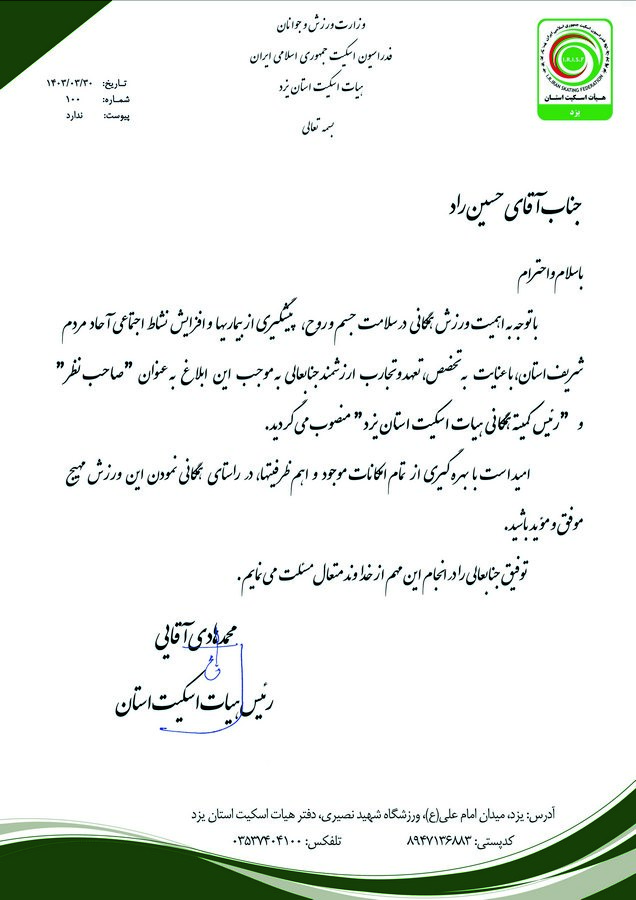 وزارت ورزش و جوانان
فدراسیون اسکیت جمهوری اسلامی ایران
هیات اسکیت استان یزد
بسمه تعالی
تاریخ: ۱۴۰۳/۰۳/۳۰
شماره: ۱۰۰
پیوست: ندارد
I.R.I.S.F
I.R.IRAN SKATING FEDERATION
هیأت اسکیت استان
یزد
جناب آقای حسین راد
باسلام و احترام
باتوجه به اهمیت ورزش همگانی در سلامت جسم و روح، پیشگیری از بیماریها و افزایش نشاط اجتماعی آحاد مردم
شریف استان، با عنایت به تخصص، تعهد و تجارب ارزشمند جنابعالی به موجب این ابلاغ به عنوان "صاحب نظر"
و "رئیس کمیته همگانی هیات اسکیت استان یزد" منصوب می گردید.
امید است با بهره گیری از تمام امکانات موجود و اهم ظرفیتها، در راستای همگانی نمودن این ورزش مهیج
موفق و مؤید باشید.
توفیق جنابعالی را در انجام این مهم از خداوند متعال مسئلت می نمایم.
محمدهادی آقایی
رئیس هیات اسکیت استان
آدرس: یزد، میدان امام علی(ع)، ورزشگاه شهید نصیری، دفتر هیات اسکیت استان یزد
کدپستی: ۸۹۴۷۱۳۶۸۸۳ تلفکس: ۰۳۵۳۷۴۰۴۱۰۰